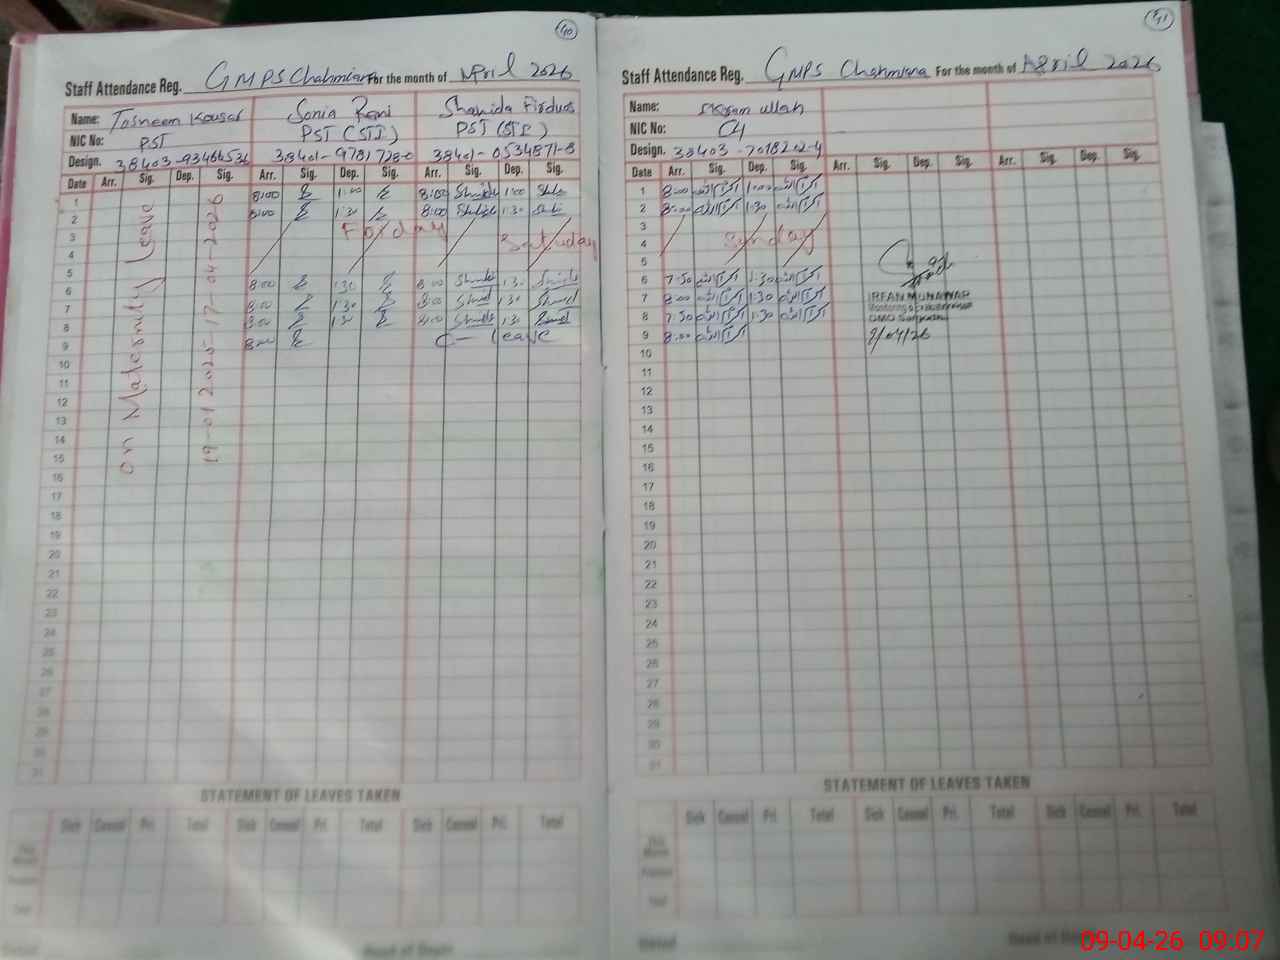 40
Staff Attendance Reg. GMPS Chahmiana For the month of April 2026
Name: Tasneem Kousar Sonia Rani Shahida Firdus
NIC No: PST PST (STI) PST (STI)
Design. 38403-9346453 38401-9781728-0 38401-0534871-8
Date Arr. Sig. Dep. Sig. Arr. Sig. Dep. Sig. Arr. Sig. Dep. Sig.
on Maternity Leave
19-01-2026 17-04-2026
1 8:00 1:00 8:00 1:00
2 8:00 1:30 8:00 1:30
3 Friday
4 Saturday
5
6 8:00 1:30 8:00 1:30
7 8:00 1:30 8:00 1:30
8 8:00 1:30 8:00 1:30
9 8:00 C- Leave
10
11
12
13
14
15
16
17
18
19
20
21
22
23
24
25
26
27
28
29
30
31
STATEMENT OF LEAVES TAKEN
Sick Casual Pri. Total Sick Casual Pri. Total Sick Casual Pri. Total
41
Staff Attendance Reg. GMPS Chahmiana For the month of April 2026
Name: Ikram ullah
NIC No: C4
Design. 38403-7018202-4
Date Arr. Sig. Dep. Sig. Arr. Sig. Dep. Sig. Arr. Sig. Dep. Sig.
1 8:00 1:00
2 8:00 1:30
3
4 Sunday
5
6 7:50 1:30
7 8:00 1:30
8 7:50 1:30
9 8:00
IRFAN MUNAWAR
DMO Sargodha
9/04/26
10
11
12
13
14
15
16
17
18
19
20
21
22
23
24
25
26
27
28
29
30
31
STATEMENT OF LEAVES TAKEN
Sick Casual Pri. Total Sick Casual Pri. Total Sick Casual Pri. Total
09-04-26 09:07